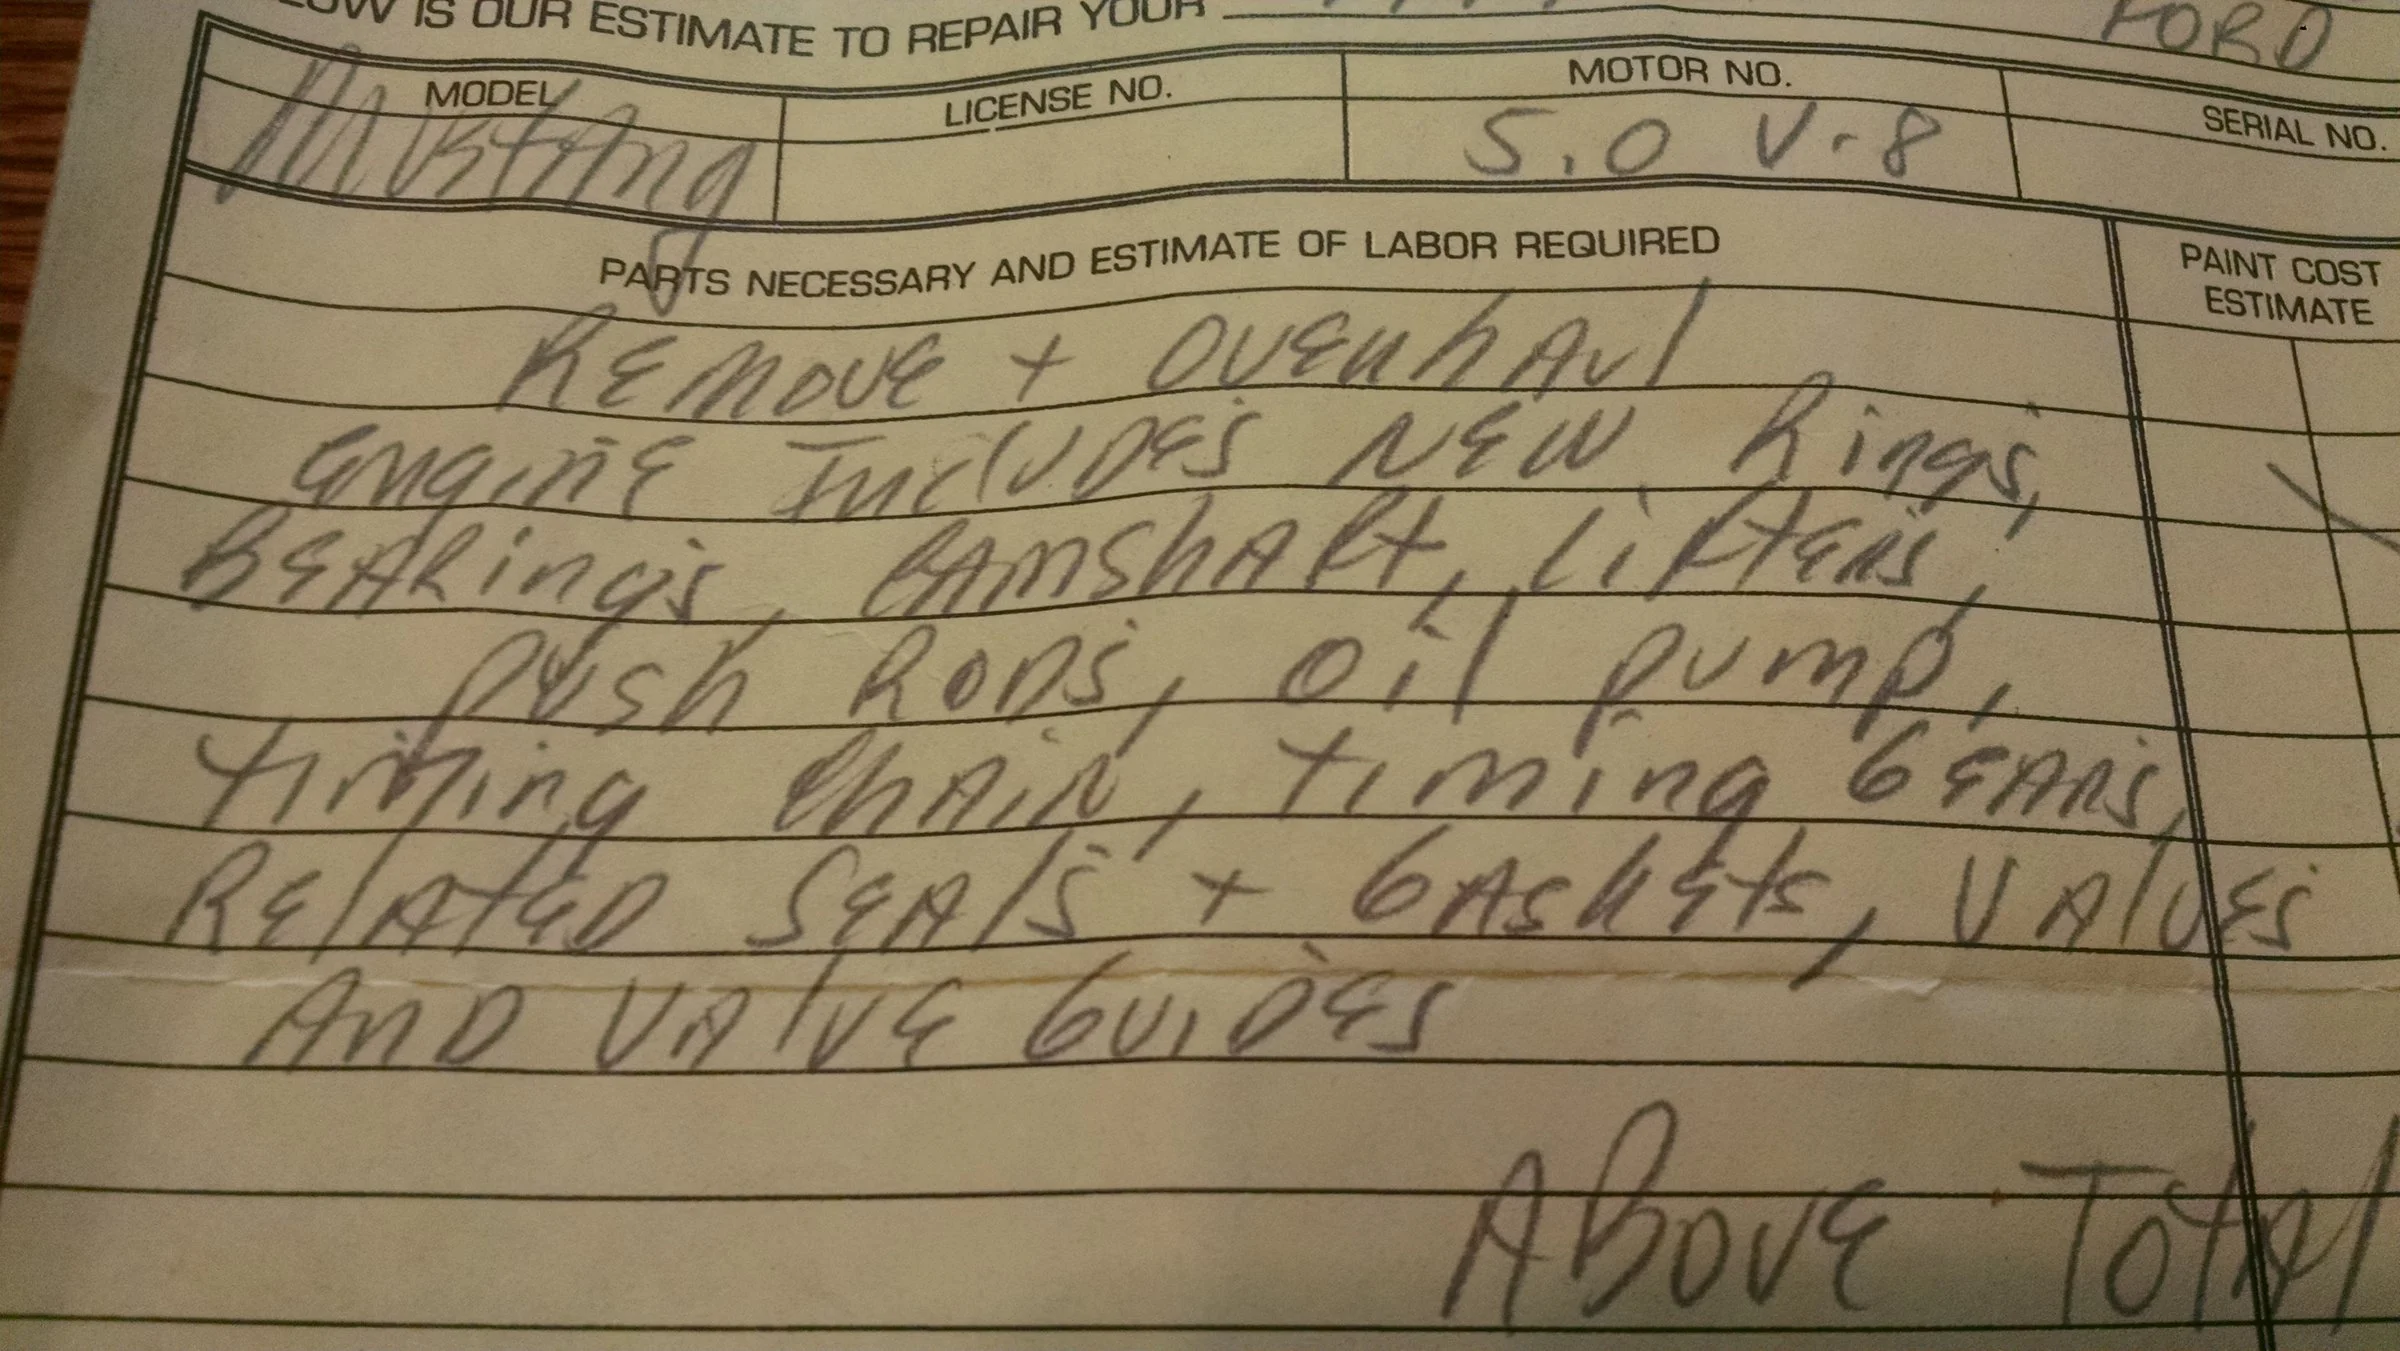 IS OUR ESTIMATE TO REPAIR YOUR FORD
MODEL LICENSE NO. MOTOR NO. SERIAL NO.
MustAng 5.0 V-8
PARTS NECESSARY AND ESTIMATE OF LABOR REQUIRED PAINT COST ESTIMATE
REMOVE + OVERhAul
EnginE IncluDEs NEW Rings,
BEARings, CAmshAft, LiftERs,
push RoDs, oil pump,
timing ChAiN, timing GEARs,
RElAtED SEAls + GAskEts, VAlvEs
AnD VAlvE GuiDEs
ABovE TotAl